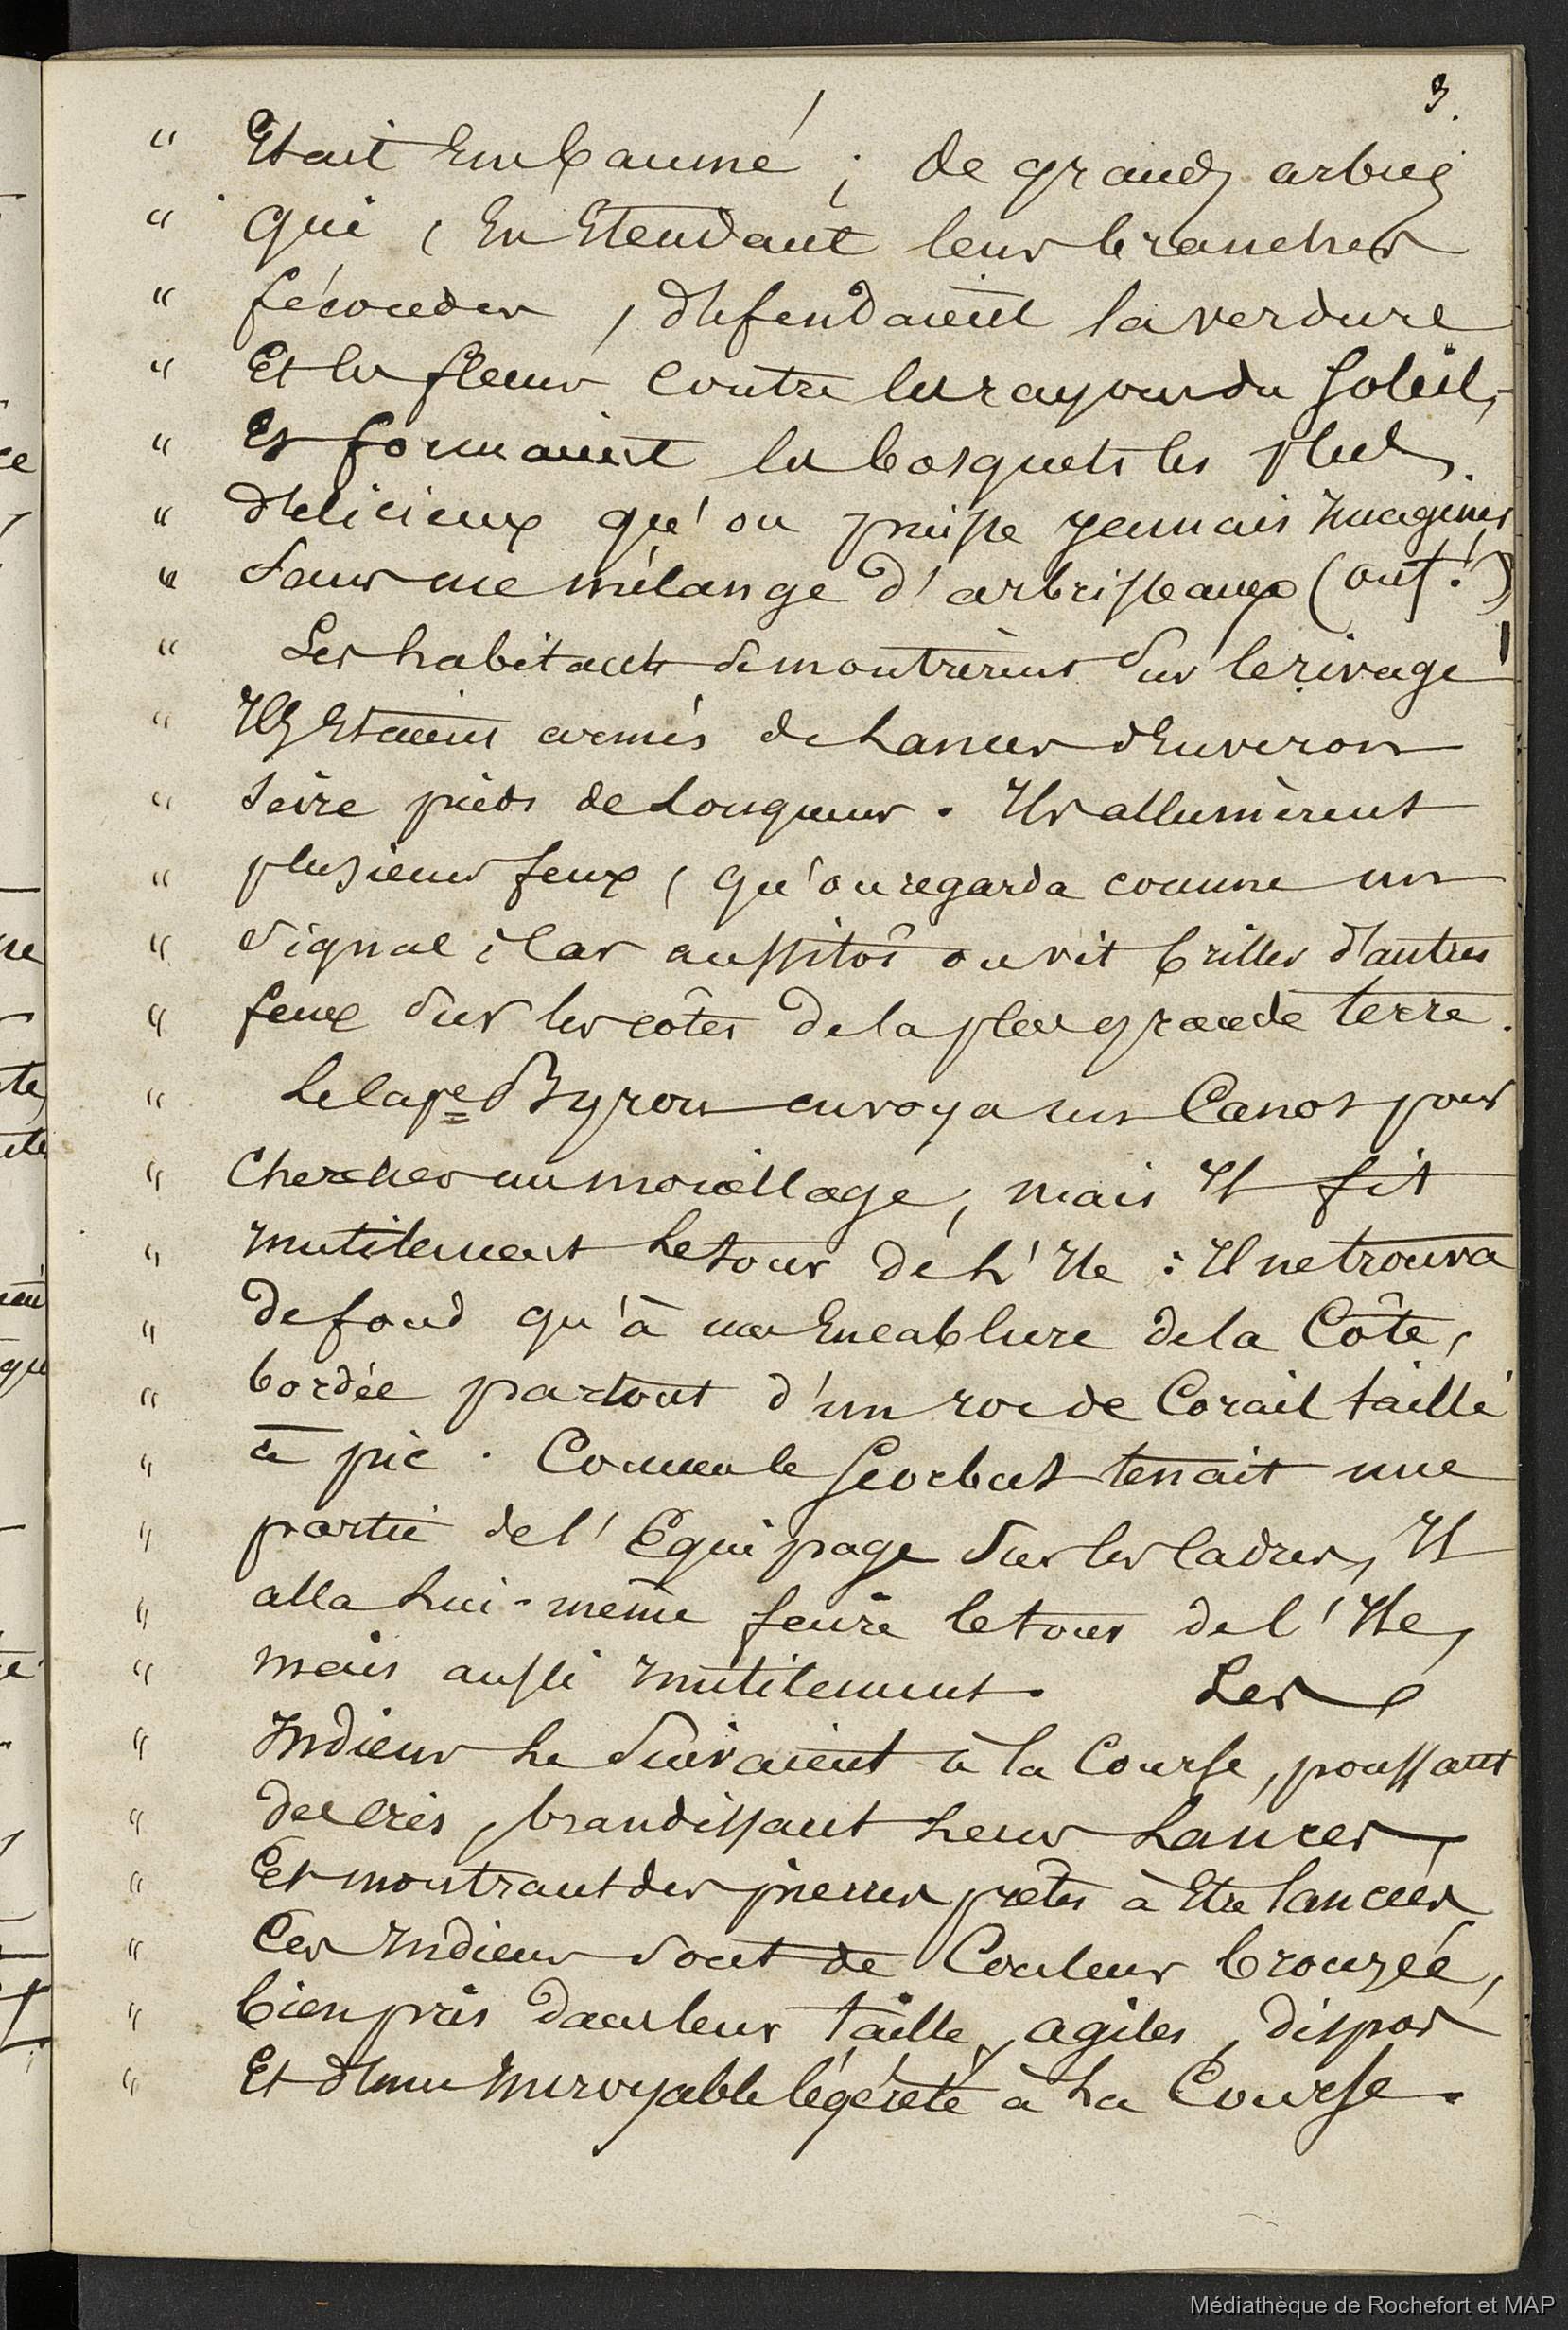 3.
" Etait Embaumé ; de grands arbres
" qui, En Etendant leurs branches
" fécondes, défendaient la verdure
" Et les fleurs contre les rayons du soleil,
" Et formaient les bosquets les plus
" délicieux qu'on puisse jamais Imaginer
" sans me mélange d'arbrisseaux (ouf !)
" Les habitants se montrèrent sur le rivage
" Ils Etaient armés de Lances d'Environ
" seize pieds de Longueur. Ils allumèrent
" plusieurs feux, qu'on regarda comme un
" signal ; Car aussitôt on vit briller d'autres
" feux sur les côtes de la plus grande terre.
" Le Cape Byron envoya un Canot pour
" Chercher un mouillage, mais Il fit
" Inutilement Le tour de L'Ile : Il ne trouva
" de fond qu'à une Encablure de la Côte,
" bordée partout d'un roc de Corail taillé
" à pic. Comme le Scorbut tenait une
" partie de l'Equipage sur les Cadres, Il
" alla Lui-même faire le tour de l'Ile,
" mais aussi Inutilement. Les
" Indiens Le suivaient à la Course, poussant
" des Cris, brandissant Leurs Lances,
" Et montrant des pierres prêtes à Etre lancées
" Ces Indiens sont de Couleur bronzée,
" bien pris dans leur taille, agiles, dispos
" Et d'une Incroyable légèreté à La Course.
Médiathèque de Rochefort et MAP